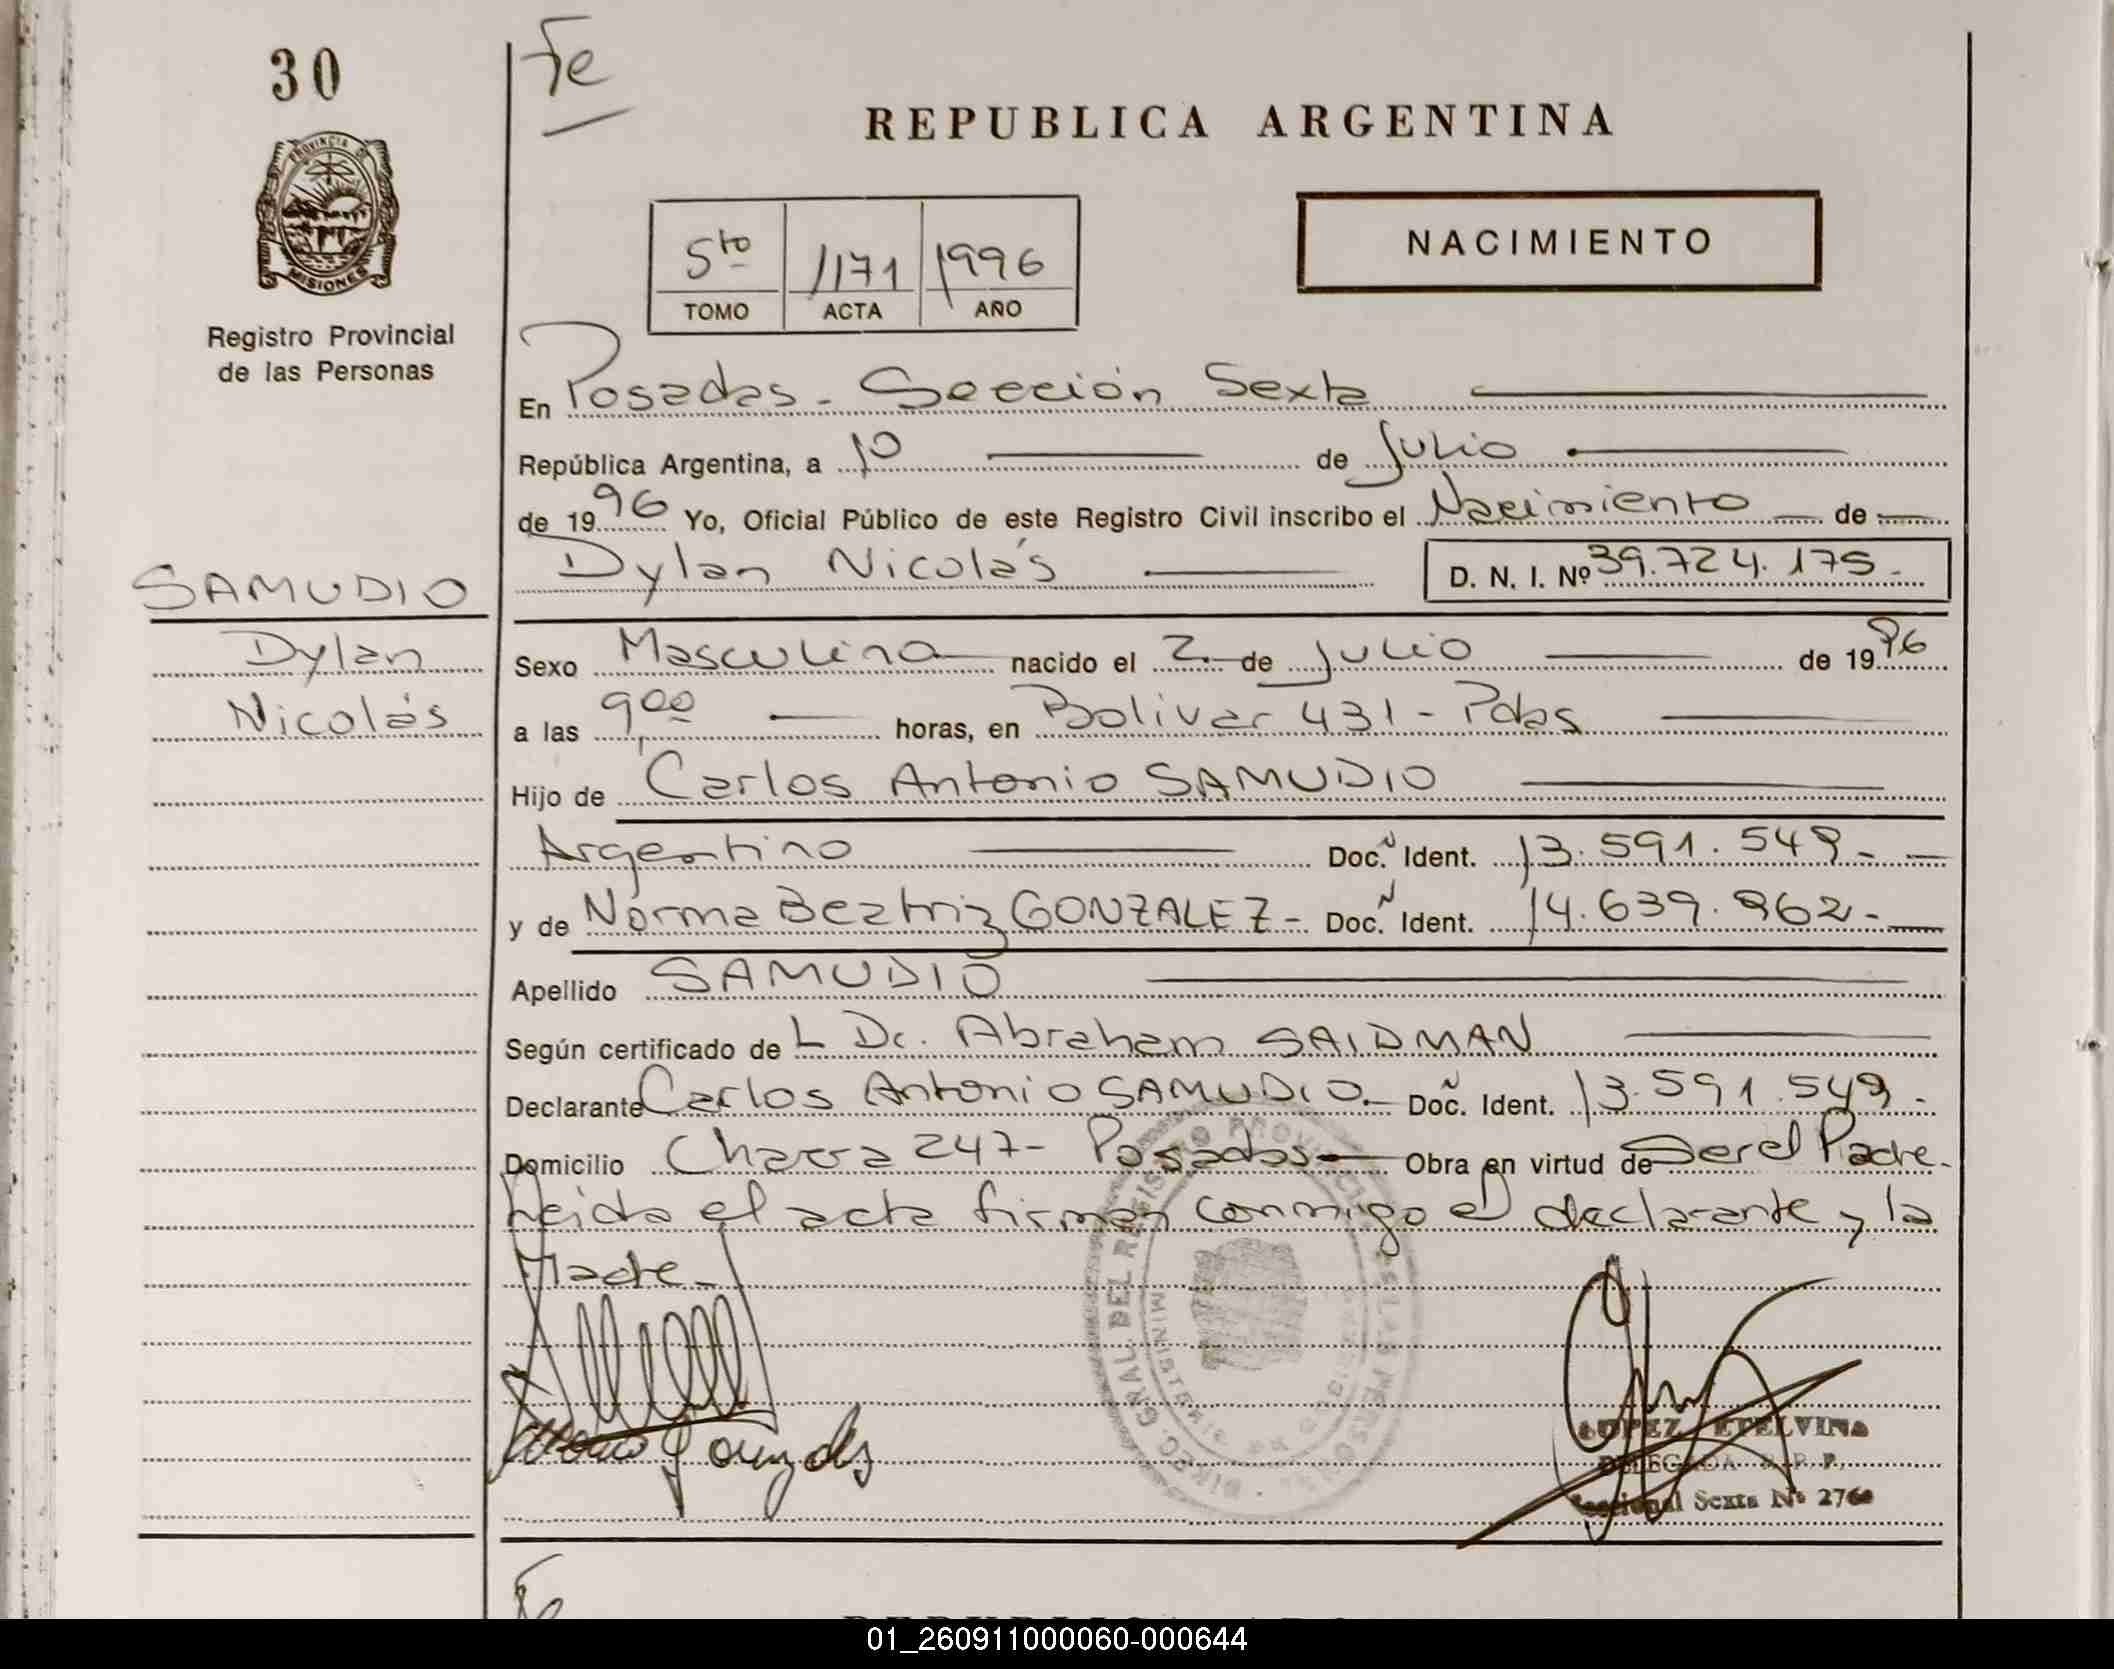 30
Fe
REPUBLICA ARGENTINA
PROVINCIA DE
MISIONES
Registro Provincial
de las Personas
5to 1171 1996
TOMO ACTA AÑO
NACIMIENTO
En Posadas - Sección Sexta
República Argentina, a 10 de Julio
de 1996 Yo, Oficial Público de este Registro Civil inscribo el Nacimiento de
Dylan Nicolás D. N. I. Nº 39.724.175.-
SAMUDIO
Dylan
Nicolás
Sexo Masculino nacido el 2 de Julio de 1996
a las 9,00 horas, en Bolivar 431 - Pdas
Hijo de Carlos Antonio SAMUDIO
Argentino Doc. Ident. 13.591.549.-
y de Norma Beatriz GONZALEZ - Doc. Ident. 14.639.962.-
Apellido SAMUDIO
Según certificado de L Dr. Abraham SAIDMAN
Declarante Carlos Antonio SAMUDIO.- Doc. Ident. 13.591.549.-
Domicilio Chacra 247 - Posadas Obra en virtud de Ser el Padre.
Leida el acta firman conmigo el declarante y la
Madre.-
DIREC. GRAL. DEL REGISTRO PROVINCIAL DE LAS PERSONAS
LOPEZ ETELVINA
DELEGADA R. P. P.
Seccional Sexta Nº 2760
Fe
01_260911000060-000644